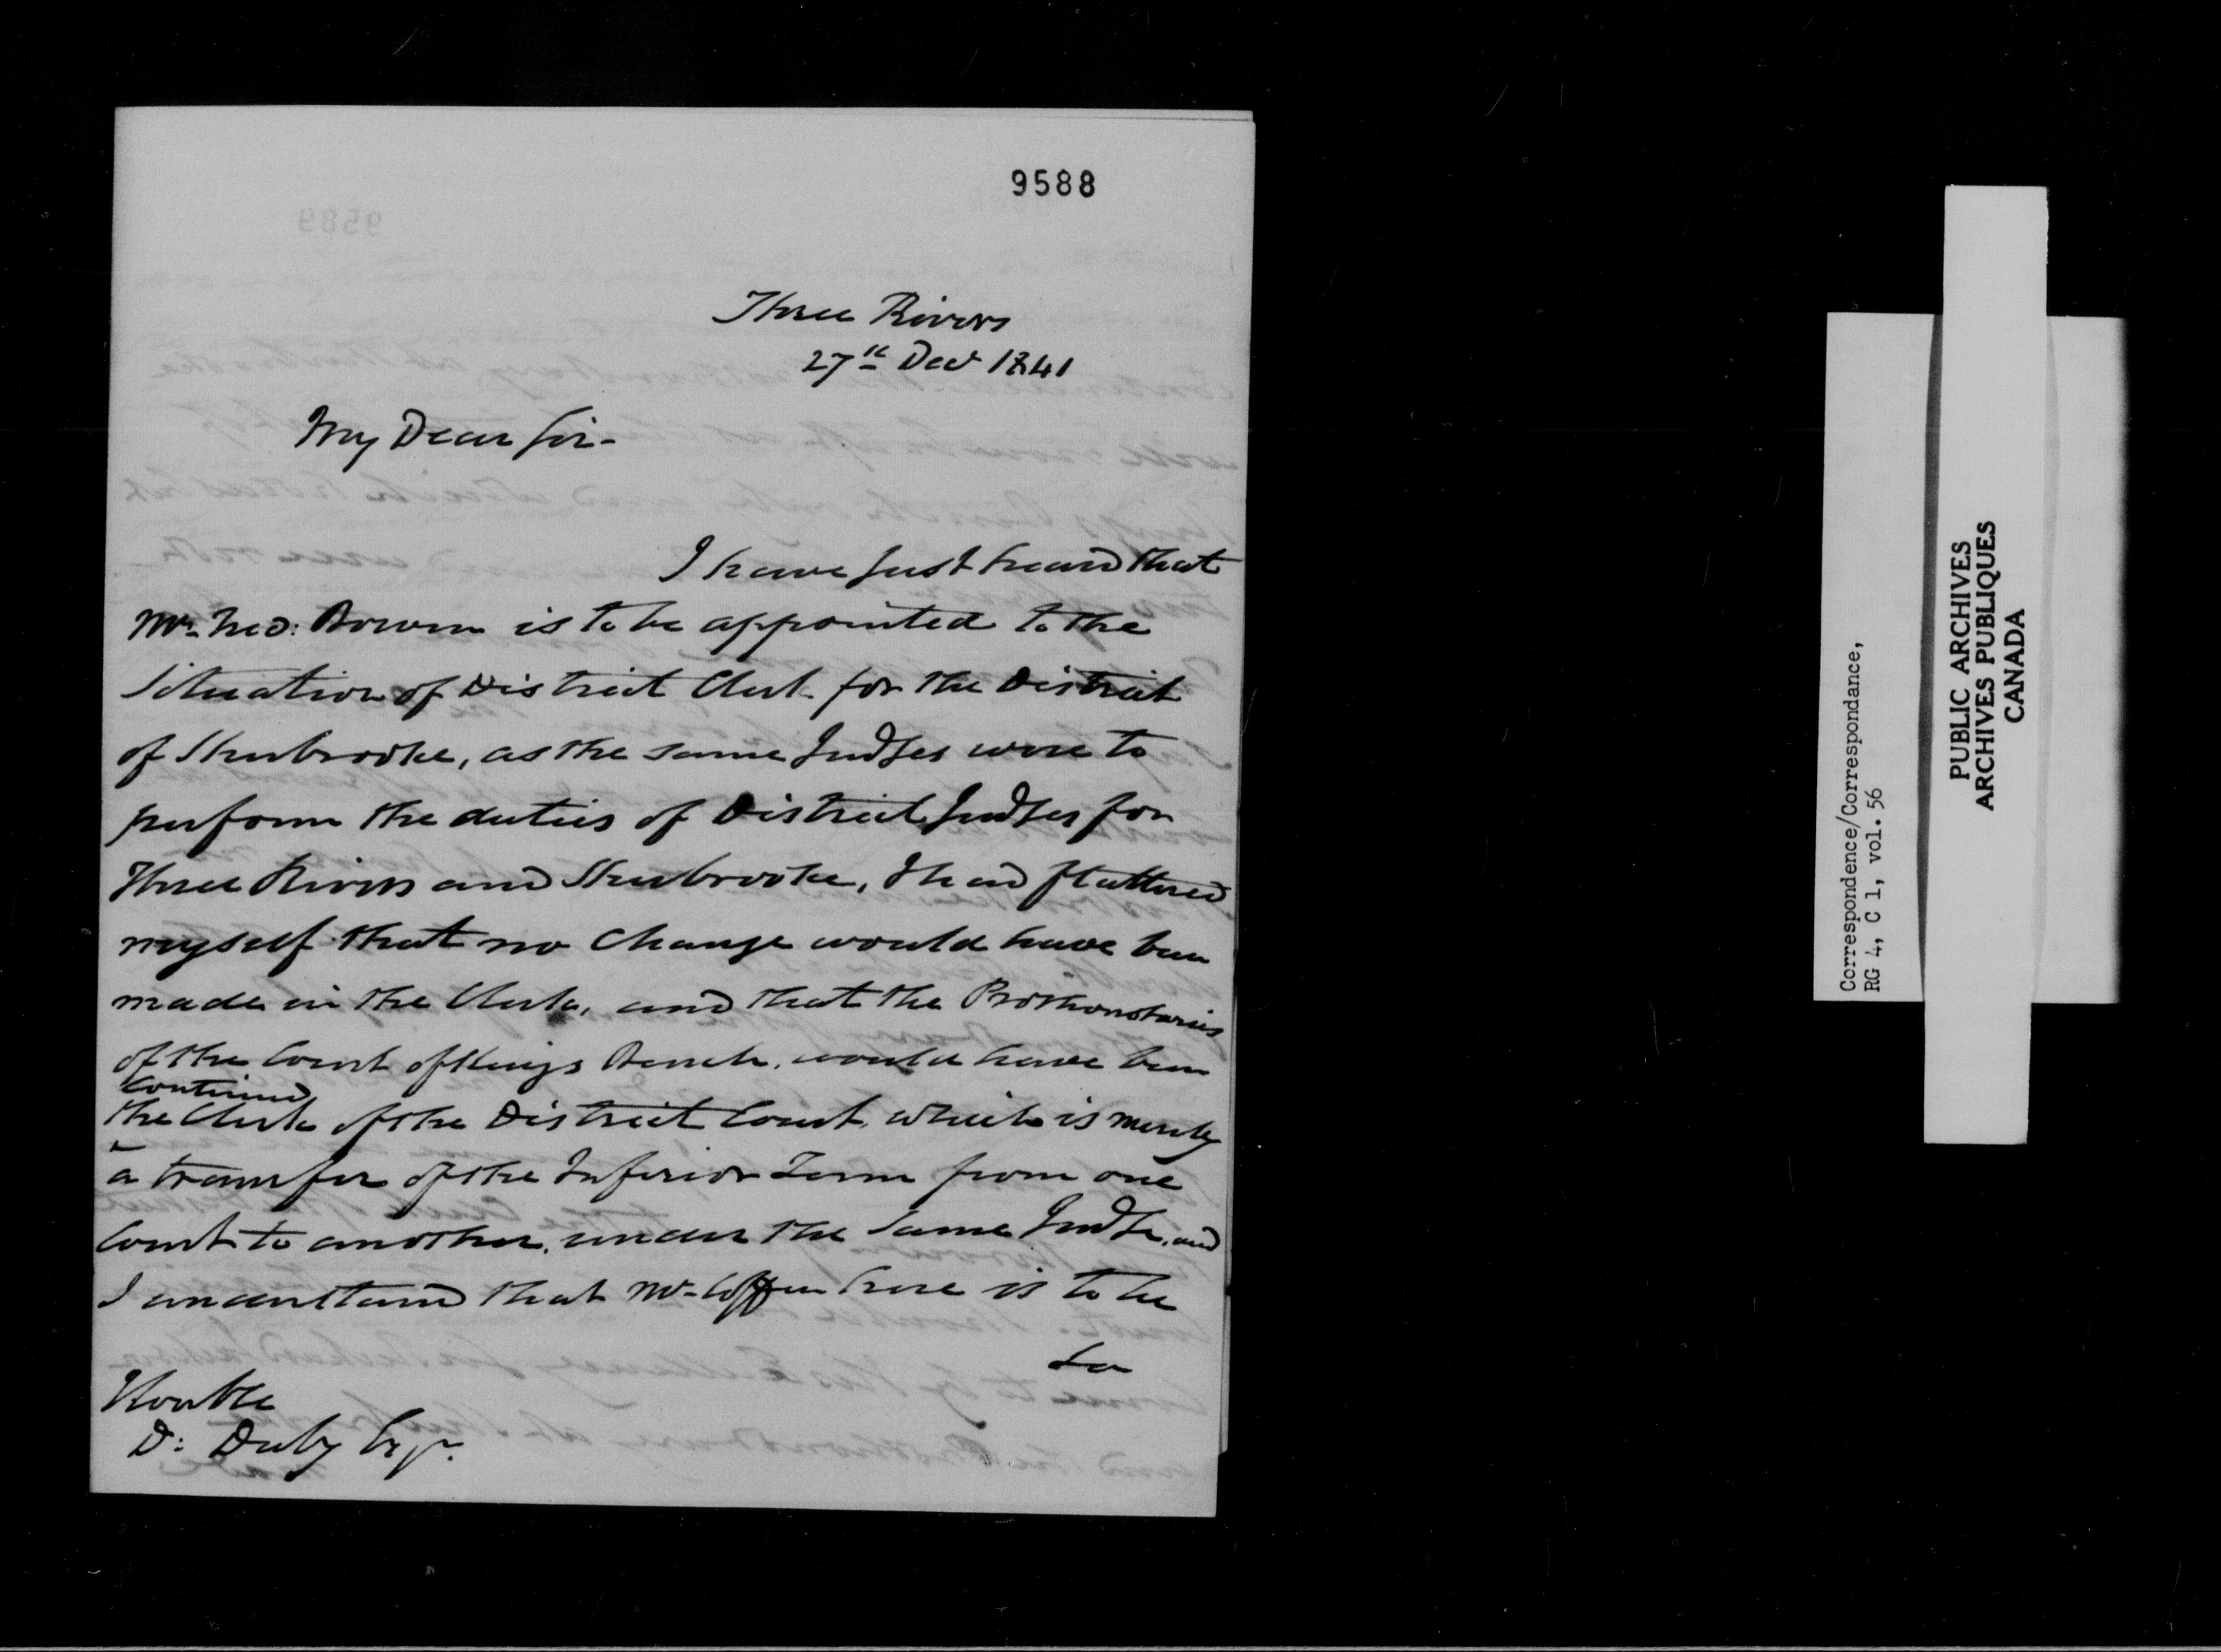 9588
Three Rivers
27th Decr 1841
My Dear Sir -
I have just heard that
Mr. Geo: Bowen is to be appointed to the
situation of District Clerk for the District
of Sherbrooke, as the same Judges were to
perform the duties of District Judges for
Three Rivers and Sherbrooke, I had flattered
myself that no Change would have been
made in the Clerks, and that the Prothonotaries
of the Court of Kings Bench, would have been
continued
the Clerks of the District Court, which is merely
a transfer of the Inferior Term from one
Court to another, under the same Judge, and
I understand that Mr. Coffin here is to be
so
Honble
D: Daly Esqr.
Correspondence/Correspondance,
RG 4, C 1, vol. 56
PUBLIC ARCHIVES
ARCHIVES PUBLIQUES
CANADA